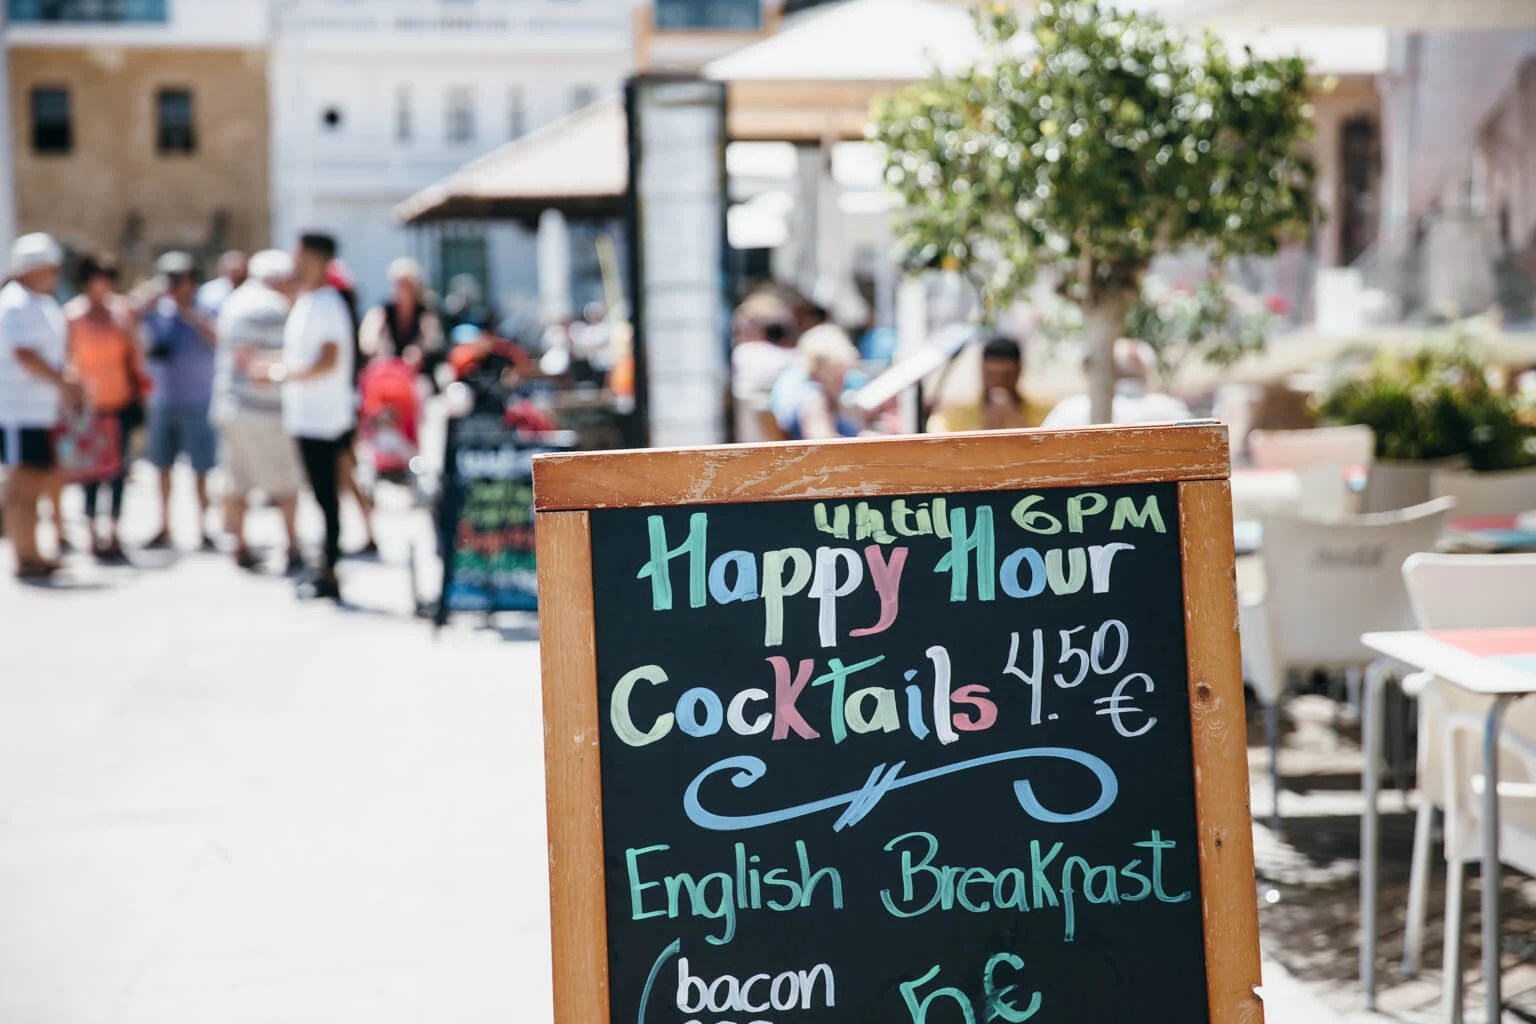 until 6PM
Happy Hour
Cocktails 4.50
€
English Breakfast
(bacon 5€